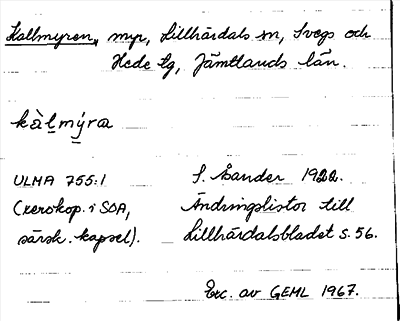 Kallmyren, myr, Lillhärdals sn, Svegs och
Hede tg, Jämtlands län.
kàl̠mýra
ULMA 755:1
(xerokop. i SOA,
särsk. kapsel).
S. Lander 1922.
Ändringslistor till
Lillhärdalsbladet s. 56.
Exc. av GEML 1967.